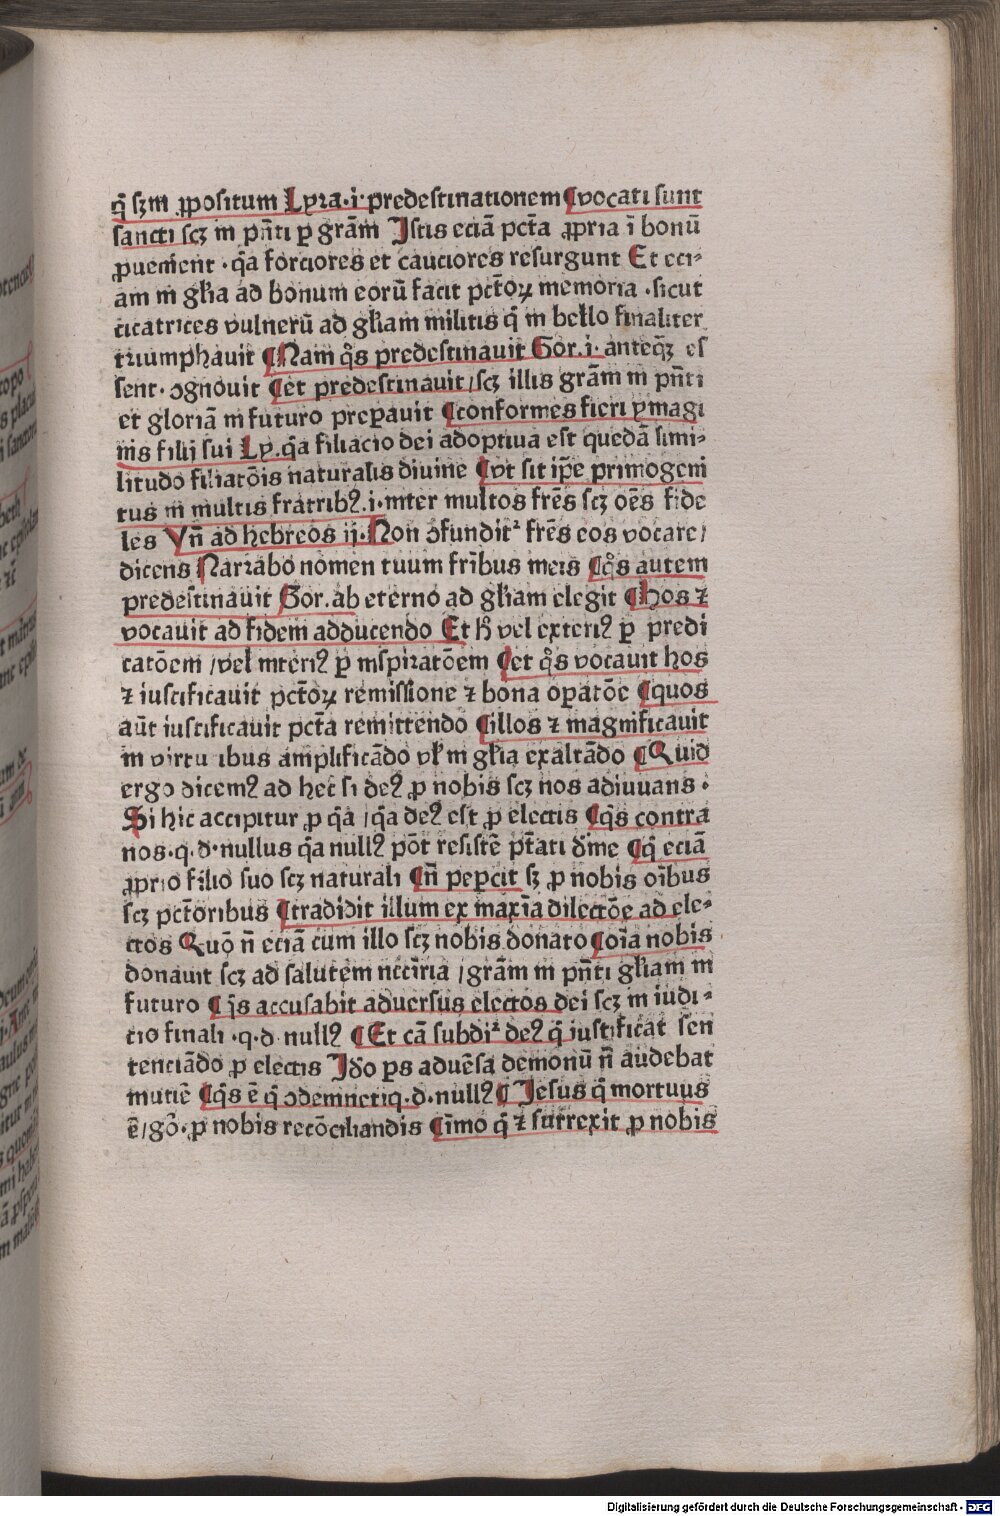 q̄ sꝫm ꝓpositum Lyra·i·predestinationem ¶vocati sunt
sancti scꝫ in pn̄ti ꝑ grām Istis eciā pctā ꝓpria ī bonū
ꝓueniēnt·q̄a forciores et cauciores resurgunt Et eci⸗
am in gl̄ia ad bonum eorū facit pctōꝝ memoria·sicut
cicatrices vulnerū ad gl̄iam militis q̄ in bello finaliter
triumphauit ¶Nam q̊s predestinauit Gor·i·anteqꝫ es
sent·ↄgnouit ¶et predestinauit/scꝫ illis grām in pn̄ti
et gloriā in futuro preꝑauit ¶conformes fieri ymagi
nis filij sui Ly·q̄a filiacio dei adoptiua est quedā simi⸗
litudo filiatōis naturalis diuine ¶vt sit ip̄e primogeni
tus in multis fratribꝰ·i·inter multos fr̄es scꝫ oēs fide
les Vn̄ ad hebreos ij·Non ↄfundit᷑ fr̄es eos vocare/
dicens Narrabo nomen tuum fr̄ibus meis ¶q̊s autem
predestinauit Gor·ab eterno ad gl̄iam elegit ¶hos ⁊
vocauit ad fidem adducendo Et h̄ vel exteriꝰ ꝑ predi
catōem/vel interiꝰ ꝑ inspiratōem ¶et q̊s vocauit hos
⁊ iustificauit pctōꝝ remissione ⁊ bona oꝑatōe ¶quos
aūt iustificauit pctā remittendo ¶illos ⁊ magnificauit
in virtu ibus amplificādo vl̄ in gl̄ia exaltādo ¶Quid
ergo dicemꝰ ad hec si deꝰ ꝓ nobis scꝫ nos adiuuans·
Si hic accipitur ꝓ q̄a/q̄a deꝰ est ꝓ electis ¶q̊s contra
nos·q·d·nullus q̄a nullꝰ pōt resistē ptāti diīne ¶q̄ eciā
ꝓprio filio suo scꝫ naturali ¶n̄ peꝑcit sꝫ ꝓ nobis oībus
scꝫ pctōribus ¶tradidit illum ex maxīa dilectōe ad ele⸗
ctos Quō n̄ eciā cum illo scꝫ nobis donato ¶oīa nobis
donauit scꝫ ad salutem nccīria/grām in pn̄ti gl̄iam in
futuro ¶q̄s accusabit aduersus electos dei scꝫ in iudi⸗
cio finali·q·d·nullꝰ ¶Et cā subdi᷑ deꝰ q̄ iustificat sen
tenciādo ꝓ electis Idō ꝑs aduēsa demonū n̄ audebat
mutiē ¶q̊s ē q̄ ↄdemnetiq·d·nullꝰ ¶Iesus q̄ mortuus
ē/gō·ꝓ nobis recōciliandis ¶īmo q̄ ⁊ surrexit ꝓ nobis
Digitalisierung gefördert durch die Deutsche Forschungsgemeinschaft · DFG